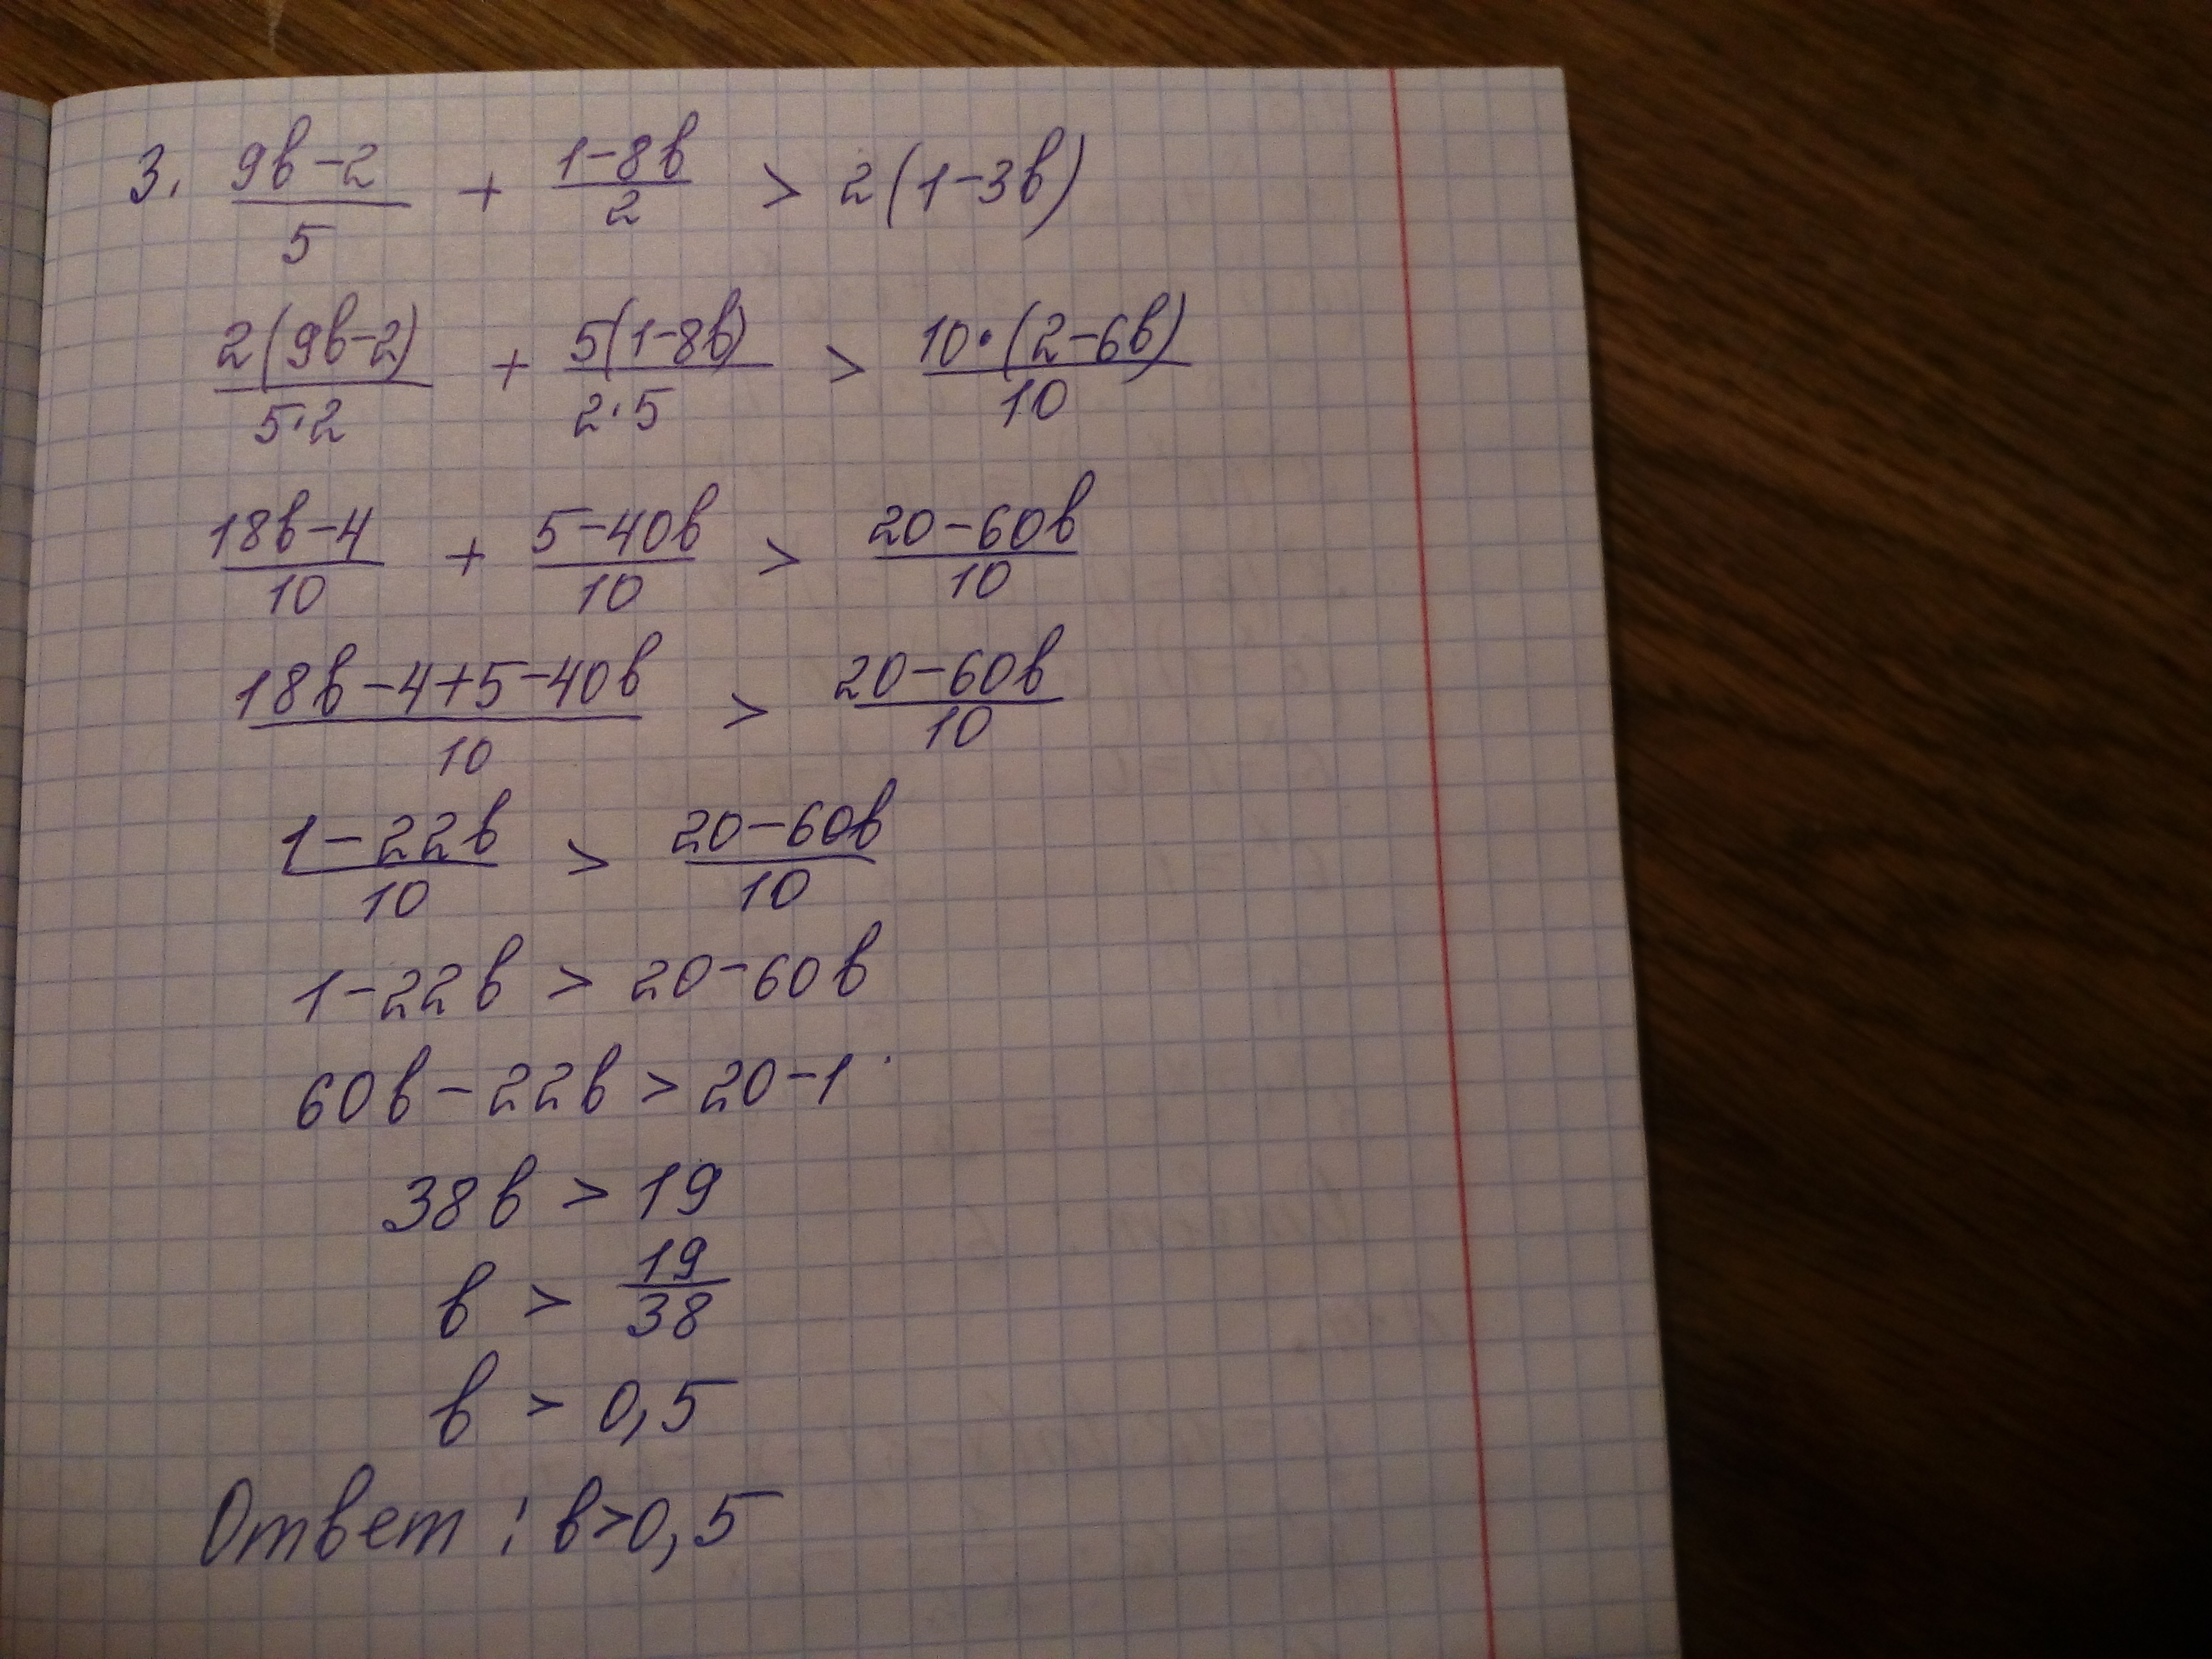 3. (9в-2)/5 + (1-8в)/2 > 2(1-3в)
2(9в-2)/(5·2) + 5(1-8в)/(2·5) > 10·(2-6в)/10
(18в-4)/10 + (5-40в)/10 > (20-60в)/10
(18в-4+5-40в)/10 > (20-60в)/10
(1-22в)/10 > (20-60в)/10
1-22в > 20-60в
60в-22в > 20-1
38в > 19
в > 19/38
в > 0,5
Ответ: в>0,5